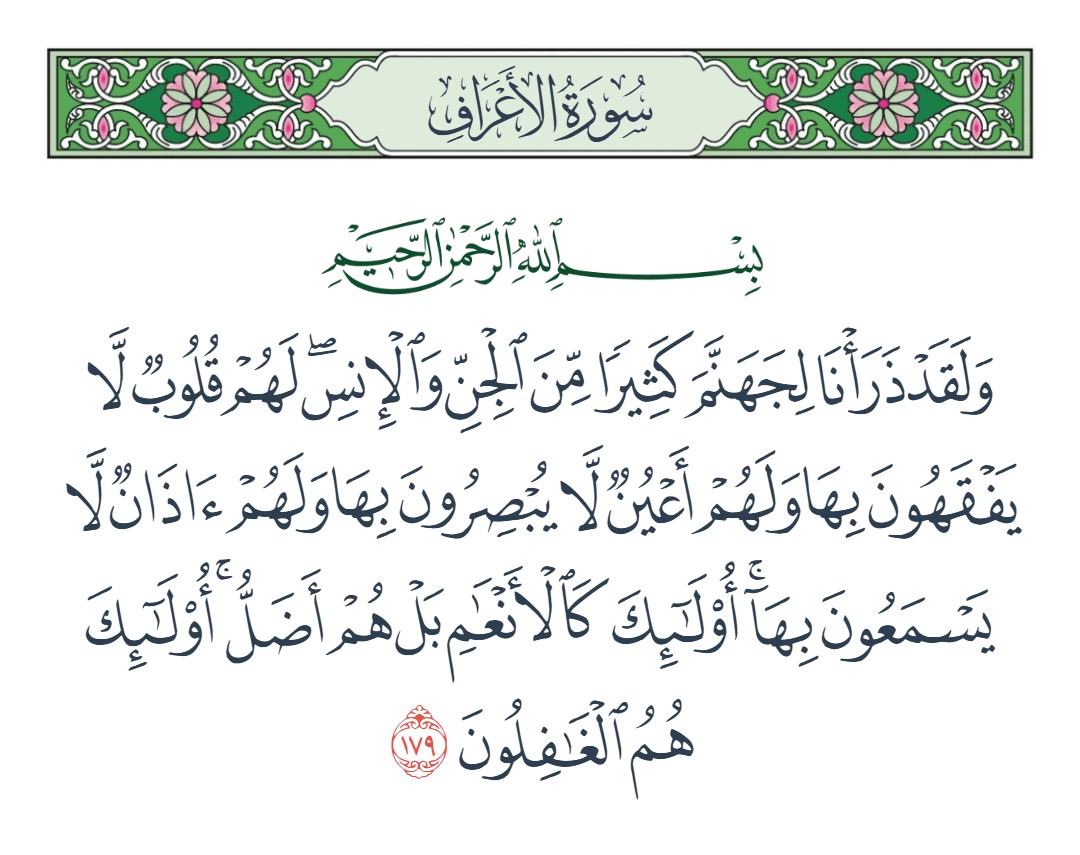 سُورَةُ الأَعْرَافِ
بِسْمِ ٱللَّهِ ٱلرَّحْمَٰنِ ٱلرَّحِيمِ
وَلَقَدْ ذَرَأْنَا لِجَهَنَّمَ كَثِيرًا مِّنَ ٱلْجِنِّ وَٱلْإِنسِ ۖ لَهُمْ قُلُوبٌ لَّا
يَفْقَهُونَ بِهَا وَلَهُمْ أَعْيُنٌ لَّا يُبْصِرُونَ بِهَا وَلَهُمْ ءَاذَانٌ لَّا
يَسْمَعُونَ بِهَآ ۚ أُو۟لَـٰٓئِكَ كَٱلْأَنْعَـٰمِ بَلْ هُمْ أَضَلُّ ۚ أُو۟لَـٰٓئِكَ
هُمُ ٱلْغَـٰفِلُونَ ١٧٩